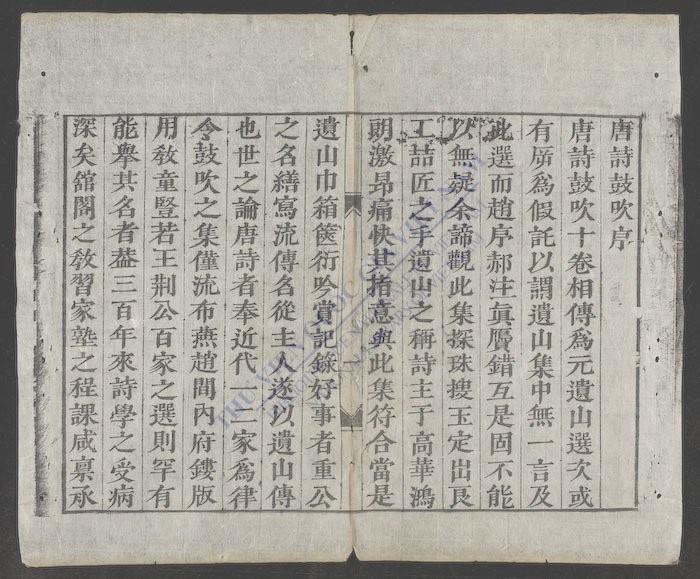 唐詩鼓吹序
唐詩鼓吹十卷相傳爲元遺山選次或
有斥爲假託以謂遺山集中無一言及
此選而趙序郝注眞贋錯互是固不能
以無疑余諦觀此集探珠搜玉定出良
工喆匠之手遺山之稱詩主于高華鴻
朗激昂痛快其指意與此集符合當是
遺山巾箱篋衍吟賞記錄好事者重公
之名繕寫流傳名從主人遂以遺山傳
也世之論唐詩者奉近代一二家爲律
令鼓吹之集僅流布燕趙間內府鏤版
用敎童豎若王荆公百家之選則罕有
能舉其名者葢三百年來詩學之受病
深矣舘閣之敎習家塾之程課咸禀承